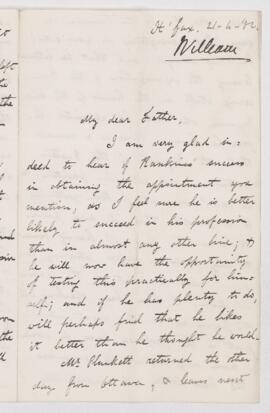 H'fax. 21-4-82.
William
My dear Father,
I am very glad in-
deed to hear of Rankine's success
in obtaining the appointment you
mention, as I feel sure he is better
likely to succeed in his profession
than in almost any other line; &
he will now have the opportunity
of testing this practically for him-
self; and if he has plenty to do,
will perhaps find that he likes
it better than he thought he would.
Mr Plunkett returned the other
day from Ottawa, & leaves next